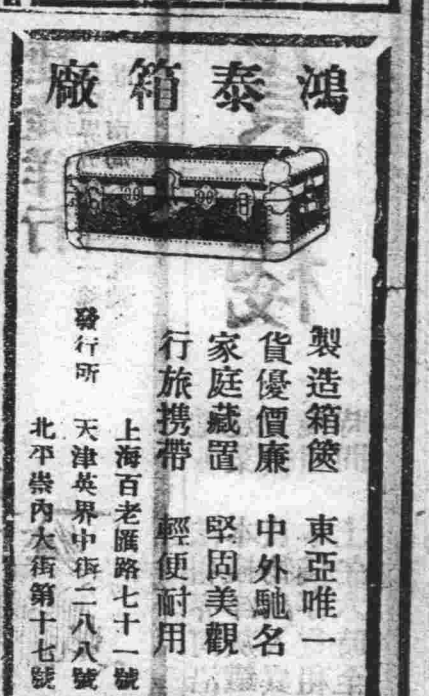 鴻泰箱廠
製造箱篋 東亞唯一
貨優價廉 中外馳名
家庭藏置 堅固美觀
行旅携帶 輕便耐用
發行所
上海百老匯路七十一號
天津英界中街二八八號
北平崇內大街第十七號